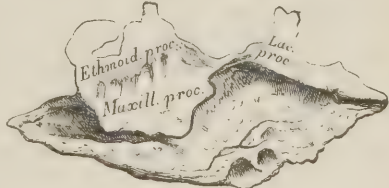 Ethmoid proc.
Maxill. proc.
Lac.
proc